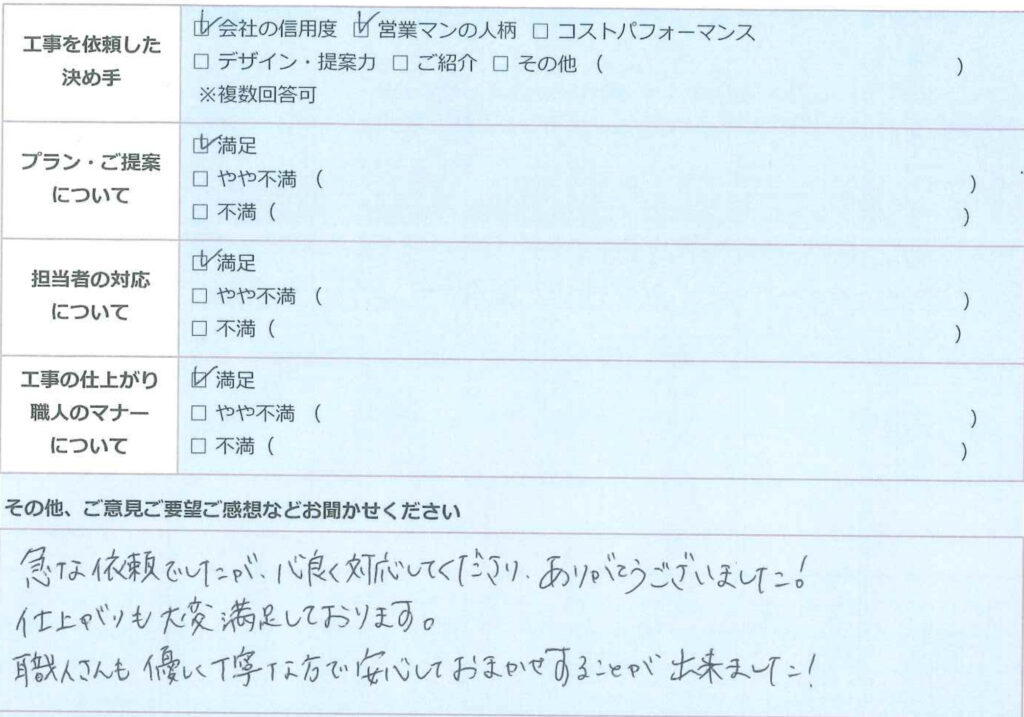 工事を依頼した
決め手
☑ 会社の信用度 ☑ 営業マンの人柄 □ コストパフォーマンス
□ デザイン・提案力 □ ご紹介 □ その他 ( )
※複数回答可
プラン・ご提案
について
☑ 満足
□ やや不満 ( )
□ 不満 ( )
担当者の対応
について
☑ 満足
□ やや不満 ( )
□ 不満 ( )
工事の仕上がり
職人のマナー
について
☑ 満足
□ やや不満 ( )
□ 不満 ( )
その他、ご意見ご要望ご感想などお聞かせください
急な依頼でしたが、心良く対応してくださり、ありがとうございました!
仕上がりも大変満足しております。
職人さんも優しく丁寧な方で安心しておまかせすることが出来ました!